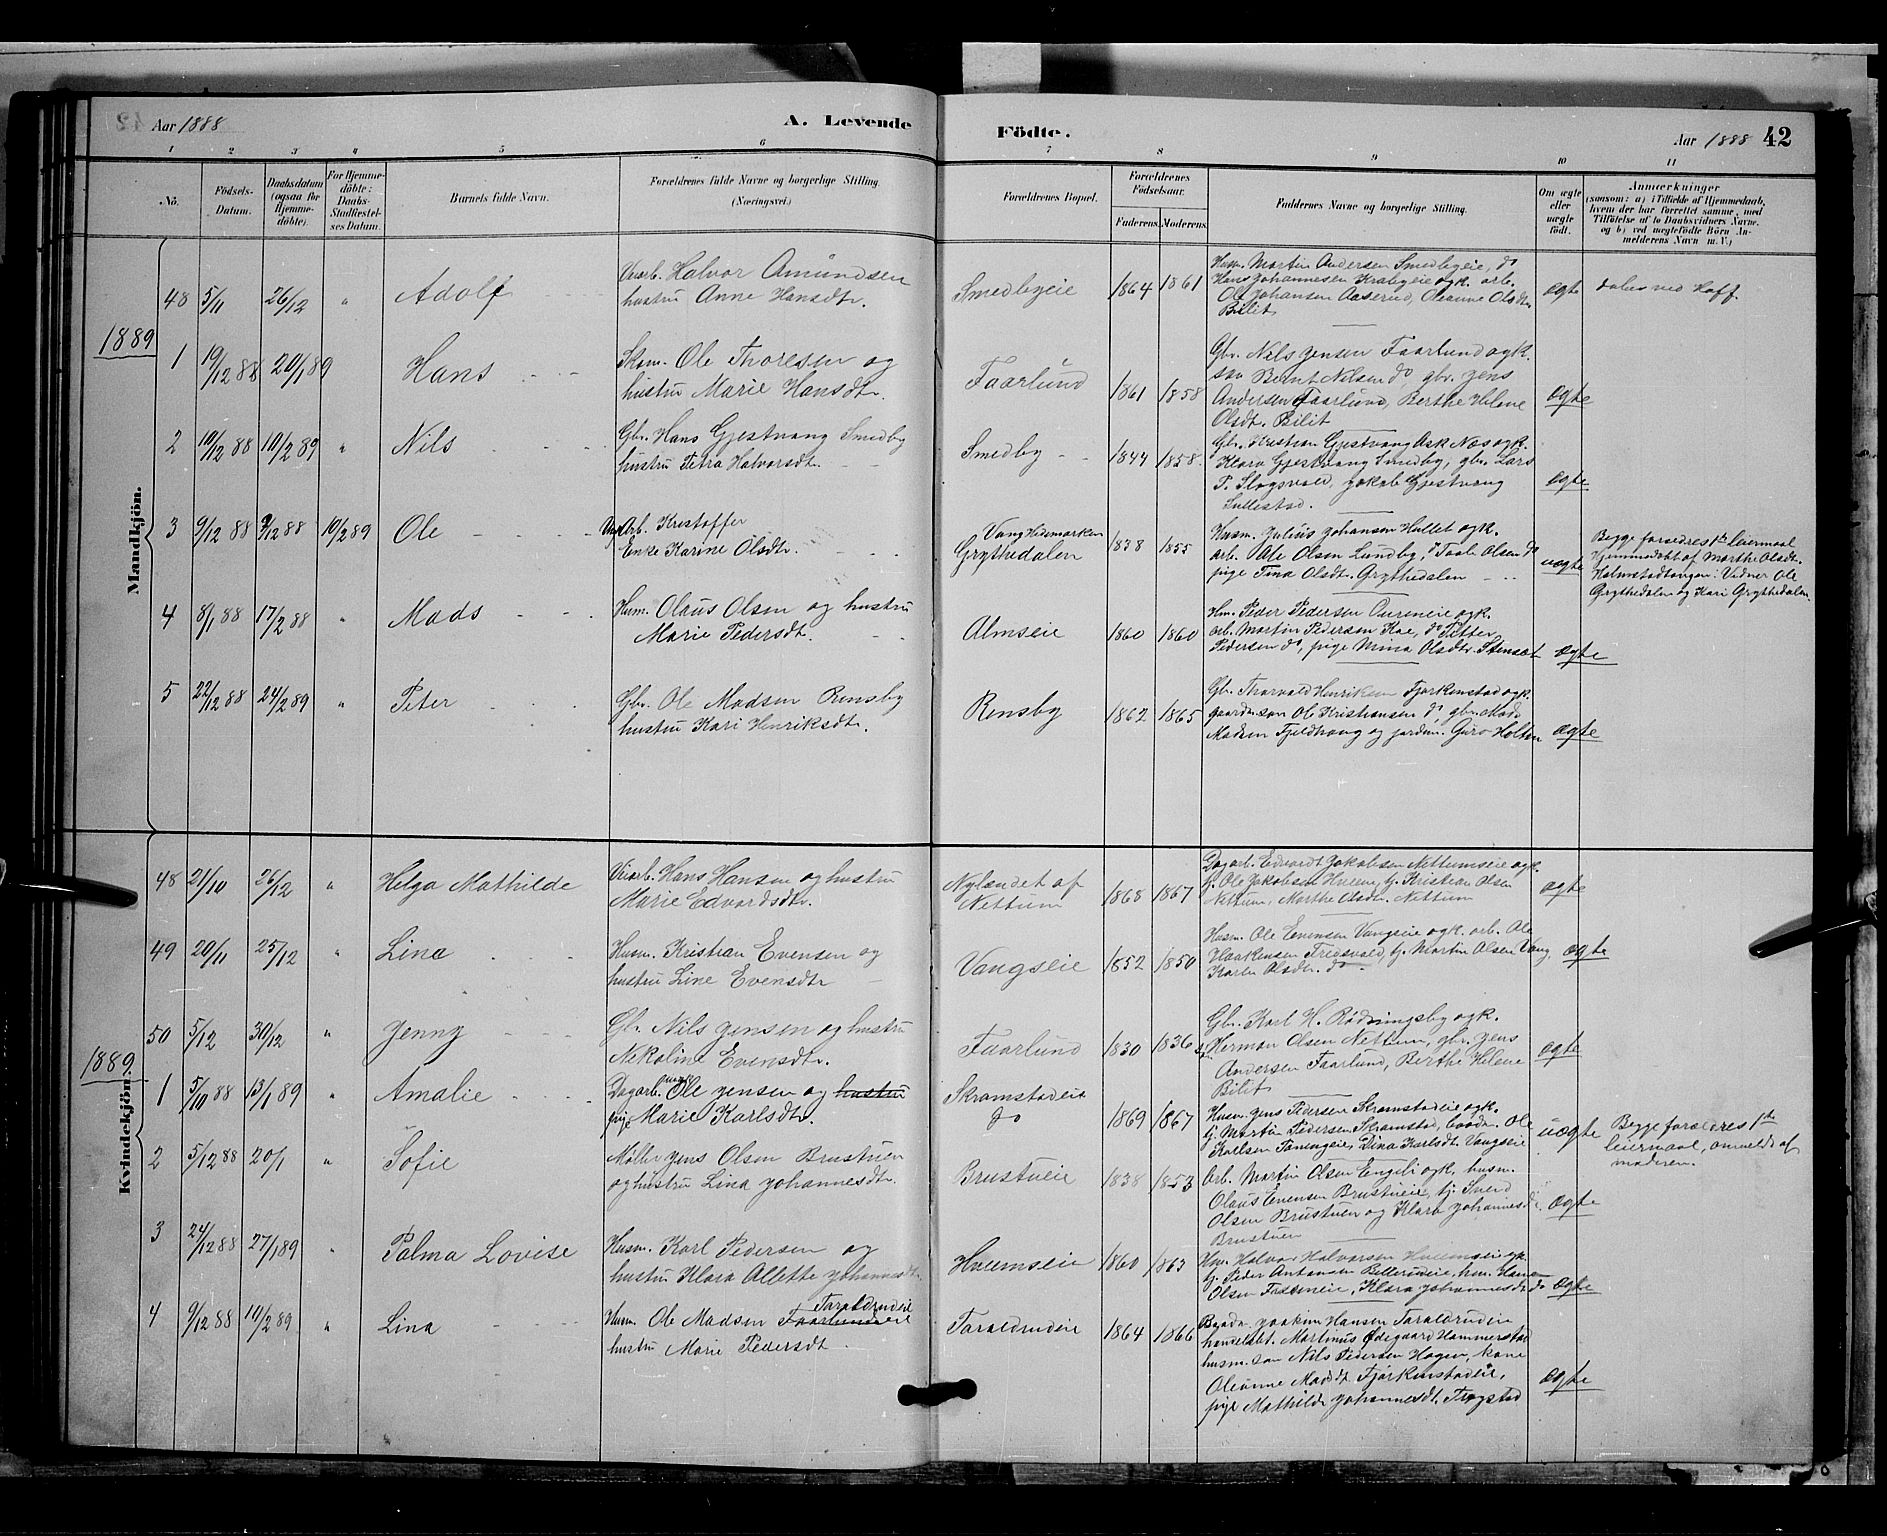 Aar 1888
A. Levende
Födte.
Aar 1888
42
1 2 3 4 5 6 7 8 9 10 11
No.
Födsels-
Datum.
Daabsdatum
(ogsaa for
Hjemme-
döbte).
For Hjemme-
döbte:
Daabs-
Stadfæstel-
ses Datum.
Barnets fulde Navn.
Forældrenes fulde Navne og borgerlige Stilling.
(Næringsvei.)
Forældrenes Bopæl.
Forældrenes
Födselsaar.
Faderens. Moderens.
Faddernes Navne og borgerlige Stilling.
Om ægte
eller
uægte
födt.
Anmærkninger
(saasom: a) i Tilfælde af Hjemmedaab,
hvem der har forrettet samme, med
Tilföielse af to Daabsvidners Navne,
og b) ved uægtefödte Börn An-
melderens Navn m. V.)
Mandkjön.
48 5/11 26/12 " Adolf
Halvor Amundsen
hustru Anne Hansdtr.
Smedbyeie 1864 1861
Husm. Martin Andersen Smedbyeie, do
Hans Johannesen
Ole Johansen Aaserud, Oleanne Olsdtr.
Bilit
ægte
döbes ved Hoff.
1889
1 19/12 88 20/1 89 Hans
Skom. Ole Thoresen og
hustru Marie Hansdtr.
Faarlund 1861 1858
Gbr. Nils Jensen Faarlund og k.
søn Bernt Nilsen do, gbr. Jens
Andersen Faarlund, Berthe Helene
Olsdt. Bilit
ægte
2 10/12 88 10/2 89 " Nils
Gbr. Hans Gjestvang Smedby
hustru Petra Halvorsdtr.
Smedby 1844 1858.
Gbr. Kristian Gjestvang Ask Næs og k.
Klara Gjestvang Smedby, gbr. Lars
P. Slogsvold, Jakob Gjestvang
Sullestad.
ægte
3 9/12 88 9/12 88 10/2 89 Ole
Arb. Kristoffer
Enke Karine Olsdtr.
Vang Hedemarken
Grythedalen 1838 1855
Husm. Julius Johansen Hullet og k.
arb. Ole Olsen Lundby, Olsen do
pige Tina Olsdt. Grythedalen
uægte
Begge foreldres 1ste leiermaal
Hjemmedöbt af Marthe Olsdtr.
Holmstadtangen: Vidner Ole
Grythedalen og Kari Grythedalen.
4 8/1 88 17/2 88 " Mads
Husm. Olaus Olsen og hustru
Marie Pedersdt.
Almseie 1860 1860
Hm. Peder Pedersen og k.
arb. Martin Pedersen do Petter
Pedersen do, pige Mina Olsdtr.
ægte
5 22/12 88 24/2 89 " Peter
Gbr. Ole Madsen Rensby
hustru Kari Henriksdtr.
Rensby 1862 1865
Gbr. Thorvald Henriksen Fjorkenstad og k.
gaardm. søn Ole Kristiansen do, gbr. Mads
Madsen Fjeldhaug og jordm. Guro Holten
ægte
Kvindekjön.
48 21/10 26/12 " Helga Mathilde
Hans Hansen og hustru
Marie Edvardsdtr.
Nylændet af
Nettum 1868 1867
Dagarb. Edvardt Jakobsen Nettumseie og k.
tj. Ole Jakobsen Hveem, tj. Kristian Olsen
Nettum, Marthe Olsdtr. Nettum
ægte
49 20/11 25/12 " Lina
Husm. Kristian Evensen og
hustru Line Evensdtr
Vangseie 1852 1850
Husm. Ole Evensen Vangseie og k. arb. Ole
Haakensen Fredsvold, tj. Martin Olsen Vang,
Karen Olsdtr. do.
ægte
50 5/12 30/12 " Jenny
Gbr. Nils Jensen og hustru
Nekoline Evensdtr.
Faarlund 1830 1836
Gbr. Karl H. Rödningsby og k.
Herman Olsen Nettum, gbr. Jens
Andersen Faarlund, Berthe Helene
Bilit
ægte
1889
1 5/10 88 13/1 89 " Amalie
Dagarb. ungk. Ole Jensen og hustru
pige Marie Karlsdtr.
Skramstadeie
do 1869 1867
Husm. Jens Pedersen Skramstadeie og k.
tj. Martin Pedersen Skramstad, Ole
Karlsen Dina Karlsdt Vangseie
uægte
Begge foreldres 1ste
leiermaal, anmeldt af
moderen.
2 5/12 88 20/1 " Sofie
Möller Jens Olsen Brustuen
og hustru Lina Johannesdtr.
Brustueie 1838 1853
Arb. Martin Olsen Engeli og k. husm.
Olaus Evensen Brustueie, tj. Svend
Olsen Brustuen og Klara Johannesdt.
Brustuen
ægte
3 24/12 88 27/1 89 " Palma Lovise
Husm. Karl Pedersen og
hustru Klara Allette Johannesdtr.
Hveemseie 1860 1863
Hm. Halvor Halvorsen Hveemseie og k.
tj. Peder Antonsen Billerudeie, hm. Hans
Olsen Klara Johannesdt do
ægte
4 9/12 88 10/2 89 " Lina
Husm. Ole Madsen Faarlundeie Taraldrudeie
hustru Marie Pedersdt.
Taraldrudeie 1864 1866
Joakim Hansen Taraldrudeie
handelsbt. Martinus Ödegaard Hammerstad
husm. søn Nils Pedersen Hagen, kone
Oleanne Madsdt Fjorkenstadeie,
pige Mathilde Johannesdt. Trogstad
ægte